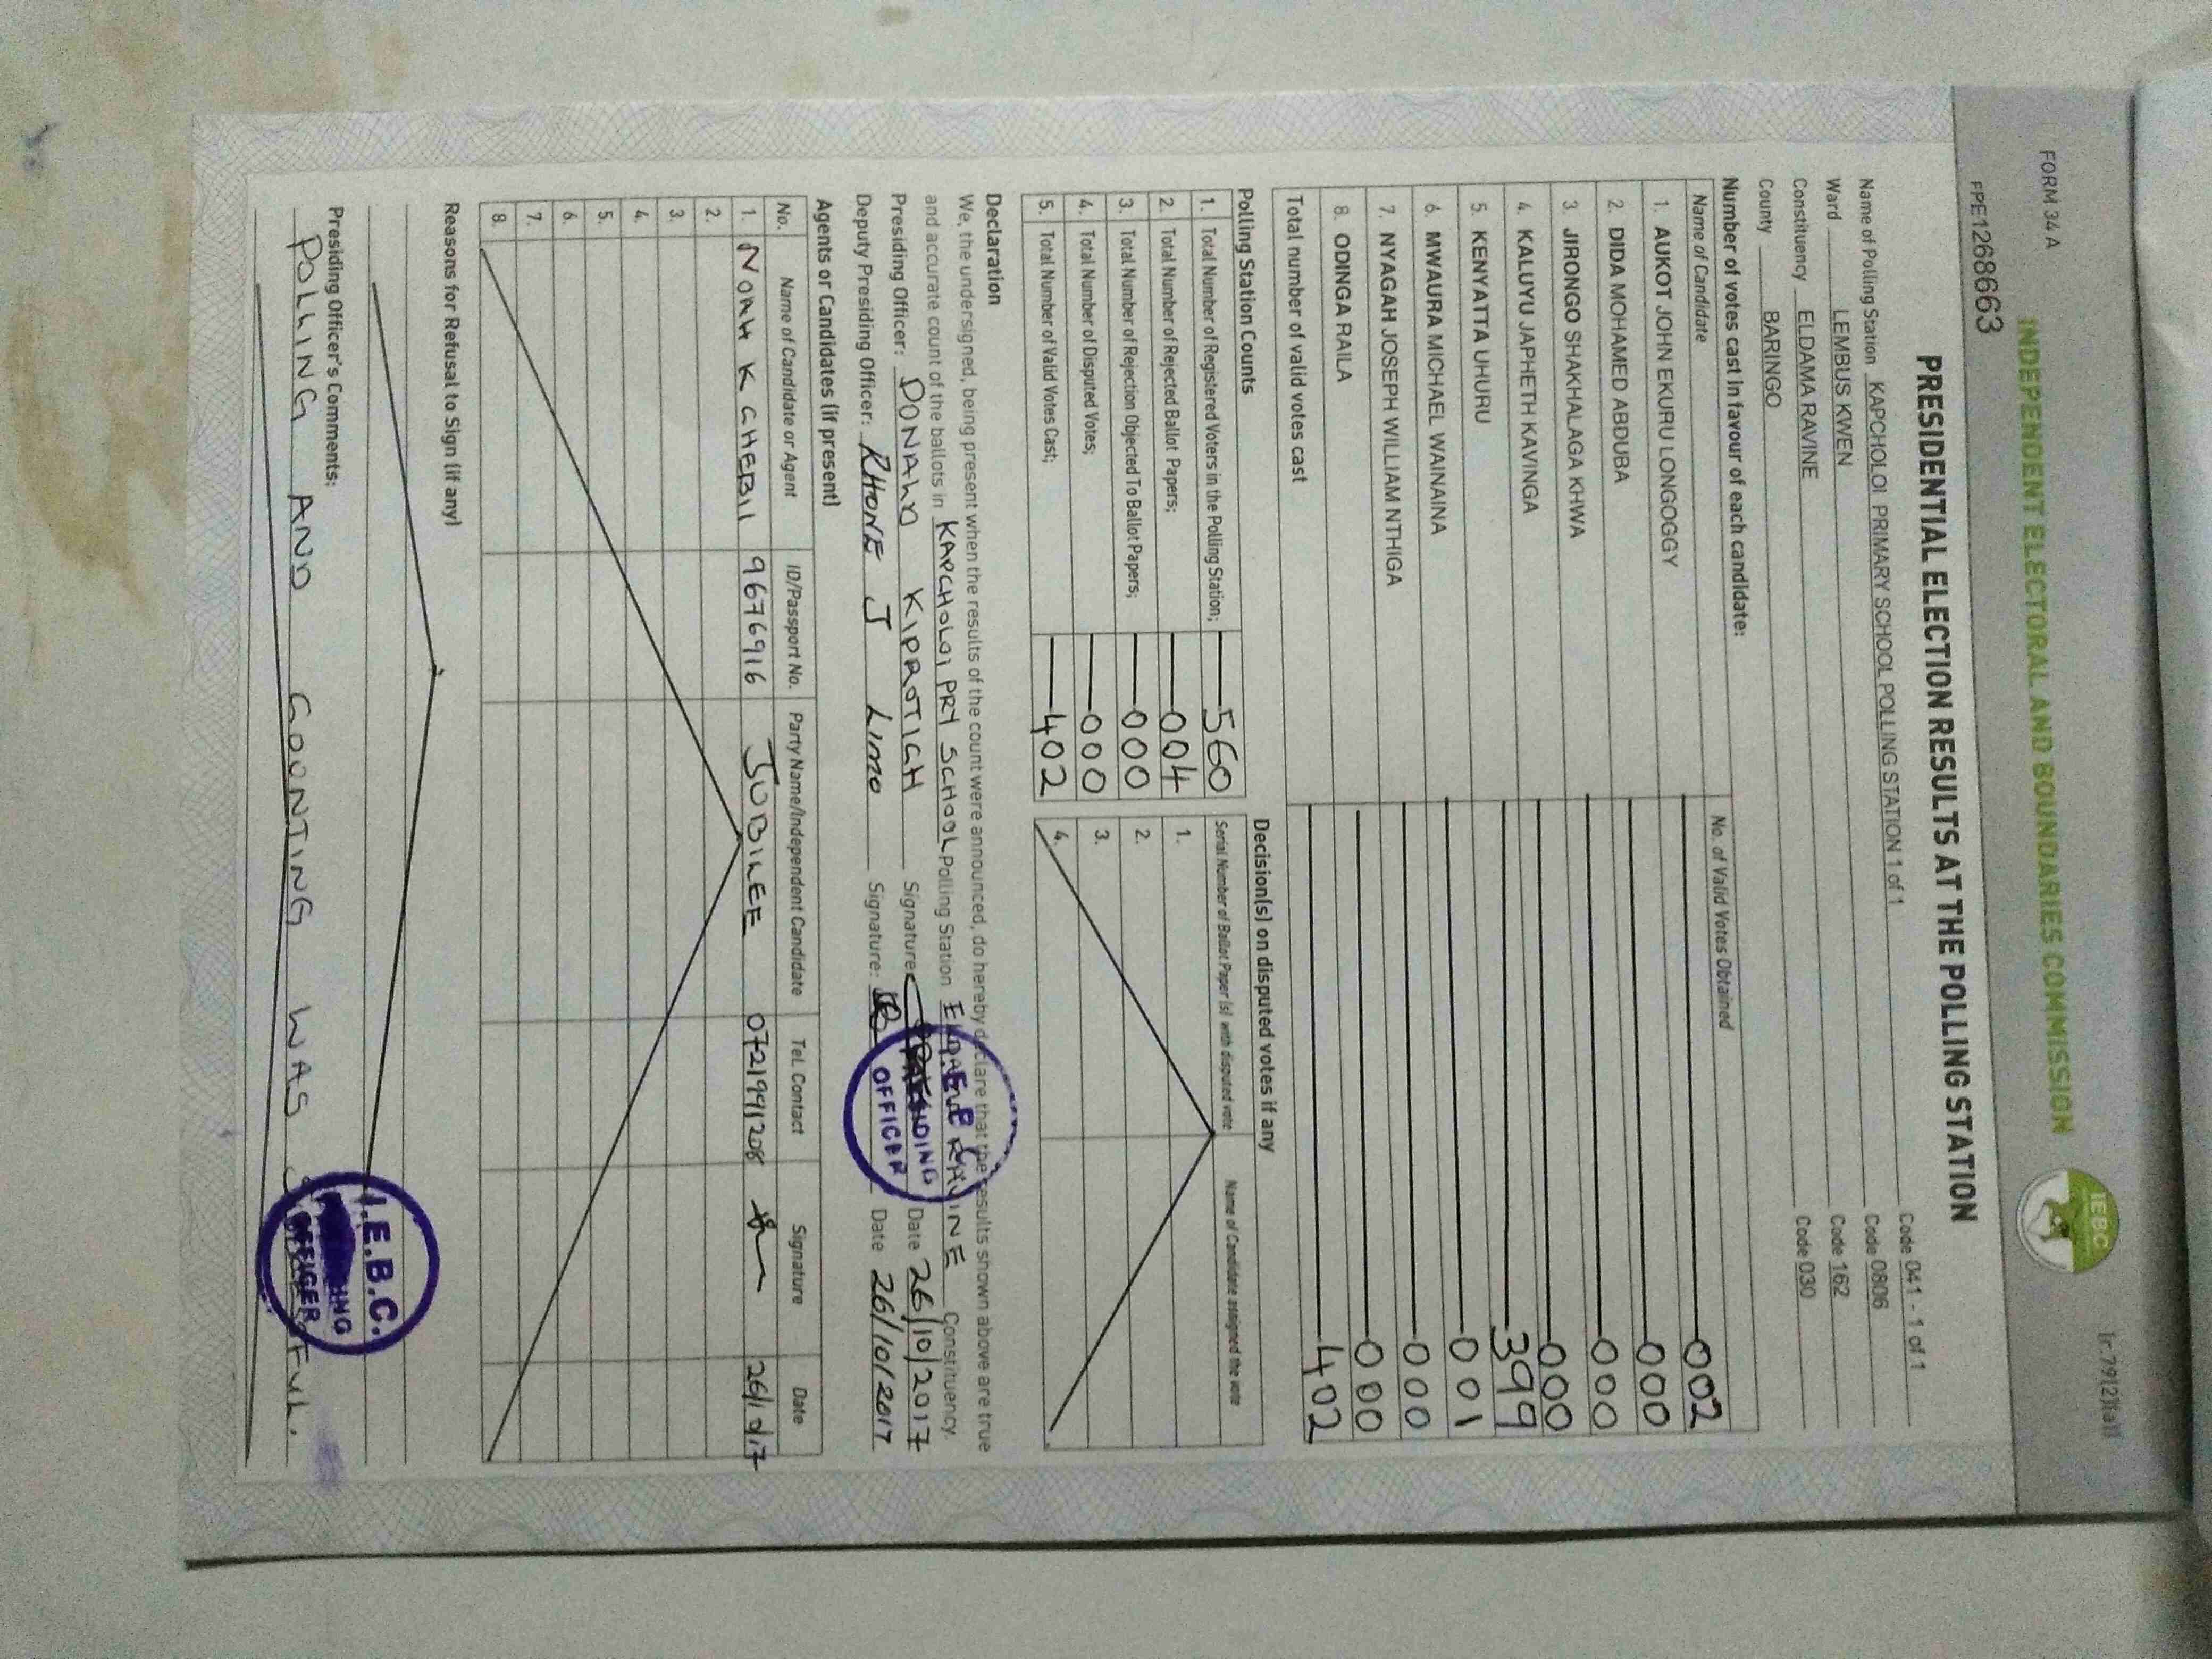 FORM 34 A
lr.79(2)(a)]
INDEPENDENT ELECTORAL AND BOUNDARIES COMMISSION
IEBC
FPE1268663
PRESIDENTIAL ELECTION RESULTS AT THE POLLING STATION
Name of Polling Station KAPCHOLOI PRIMARY SCHOOL POLLING STATION 1 of 1 Code 041 - 1 of 1
Ward LEMBUS KWEN Code 0806
Constituency ELDAMA RAVINE Code 162
County BARINGO Code 030
Number of votes cast in favour of each candidate:
Name of Candidate No. of Valid Votes Obtained
1. AUKOT JOHN EKURU LONGOGGY 002
2. DIDA MOHAMED ABDUBA 000
3. JIRONGO SHAKHALAGA KHWA 000
4. KALUYU JAPHETH KAVINGA 000
5. KENYATTA UHURU 399
6. MWAURA MICHAEL WAINAINA 001
7. NYAGAH JOSEPH WILLIAM NTHIGA 000
8. ODINGA RAILA 000
Total number of valid votes cast 402
Polling Station Counts
1. Total Number of Registered Voters in the Polling Station; 560
2. Total Number of Rejected Ballot Papers; 004
3. Total Number of Rejection Objected To Ballot Papers; 000
4. Total Number of Disputed Votes; 000
5. Total Number of Valid Votes Cast; 402
Decision(s) on disputed votes if any
Serial Number of Ballot Paper (s) with disputed vote Name of Candidate assigned the vote
1.
2.
3.
4.
Declaration
We, the undersigned, being present when the results of the count were announced, do hereby declare that the results shown above are true
and accurate count of the ballots in KAPCHOLOI PRY SCHOOL Polling Station ELDAMA RAVINE Constituency.
Presiding Officer: DONALD KIPROTICH Signature: Date 26/10/2017
Deputy Presiding Officer: RHONE J LIMO Signature: Date 26/10/2017
PRESIDING
OFFICER
Agents or Candidates (if present)
No. Name of Candidate or Agent ID/Passport No. Party Name/Independent Candidate Tel. Contact Signature Date
1. NOAH K CHEBII 9676916 JUBILEE 0721991208 26/10/17
2.
3.
4.
5.
6.
7.
8.
Reasons for Refusal to Sign (if any)
Presiding Officer's Comments:
POLLING AND COUNTING WAS
I.E.B.C.
OFFICER